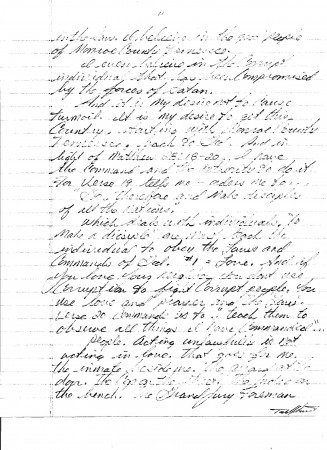 in the laws. I believe in the good people
of Monroe County Tennessee.
I even believe in the Corrupt
individual that has been Compromised
by the forces of Satan.
And it is my desire not to cause
turmoil. It is my desire to get this
Country, starting with Monroe County
Tennessee, back to God. And in
light of Mathew 28:18-20. I have
the Command and the authority to do it.
For verse 19 tells me - orders me to...
Go therefore and make disciples
of all the nations,
which deals with individuals. To
make a disciple we must teach the
individual to obey the Laws and
Commands of God. #1 = Love. And if
you love your neighbor you don't use
Corruption to fight Corrupt people, You
use love and prayer and the laws.
verse 20 Commands us to "teach them to
observe all things I have Commanded"...
people. Acting unlawfully is not
acting in love. That goes for me.
The inmate beside me. The
door. The The Judge on
the bench. The Grand Jury Foreman